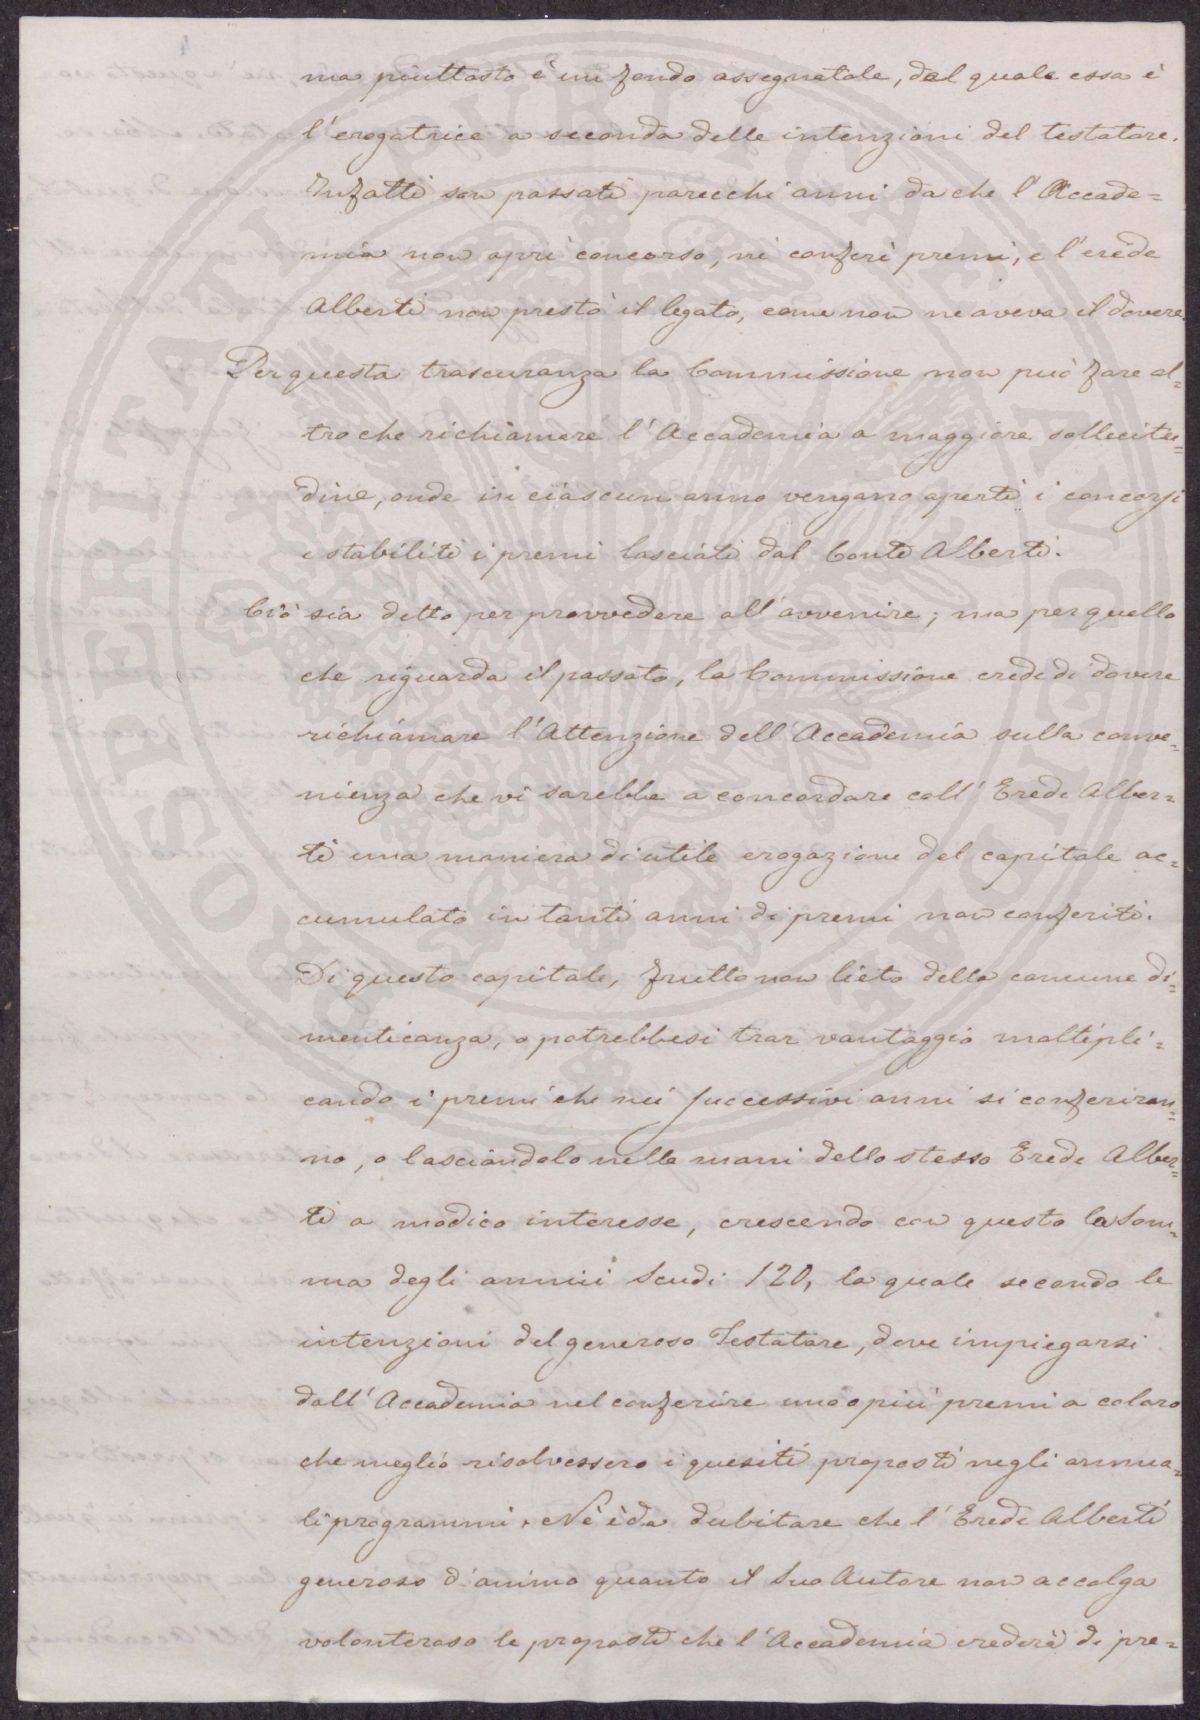 ma piuttosto è un fondo assegnatole, del quale essa è
l'erogatrice a seconda delle intenzioni del testatore.
Infatti son passati parecchi anni da che l'Accade=
mia non aprì concorso, nè conferì premi, e l'erede
Alberti non prestò il legato, come non ne aveva il dovere.
Per questa trascuranza la Commissione non può fare al=
tro che richiamare l'Accademia a maggiore sollecitu=
dine, onde in ciascun anno vengano aperti i concorsi
e stabiliti i premi lasciati dal Conte Alberti.
Ciò sia detto per provvedere all'avvenire; ma per quello
che riguarda il passato, la Commissione crede di dovere
richiamare l'Attenzione dell'Accademia sulla conve=
nienza che vi sarebbe a concordare coll'Erede Alber=
ti una maniera di utile erogazione del capitale ac=
cumulato in tanti anni di premi non conferiti.
Di questo capitale, frutto non lieto della comune di=
menticanza, o potrebbesi trar vantaggio moltipli=
cando i premi che nei successivi anni si conferiran=
no, o lasciandolo nelle mani dello stesso Erede Alber=
ti a modico interesse, crescendo con questo la Som=
ma degli annui Scudi 120, la quale secondo le
intenzioni del generoso Testatore, deve impiegarsi
dall'Accademia nel conferire uno o più premi a coloro
che meglio risolvessero i quesiti proposti negli annua=
li programmi. Nè è da dubitare che l'Erede Alberti
generoso d'animo quanto il Suo Autore non accolga
volonteroso le proposte che l'Accademia crederà di pre=
PROSPERITATI PUBLICAE AUGENDAE